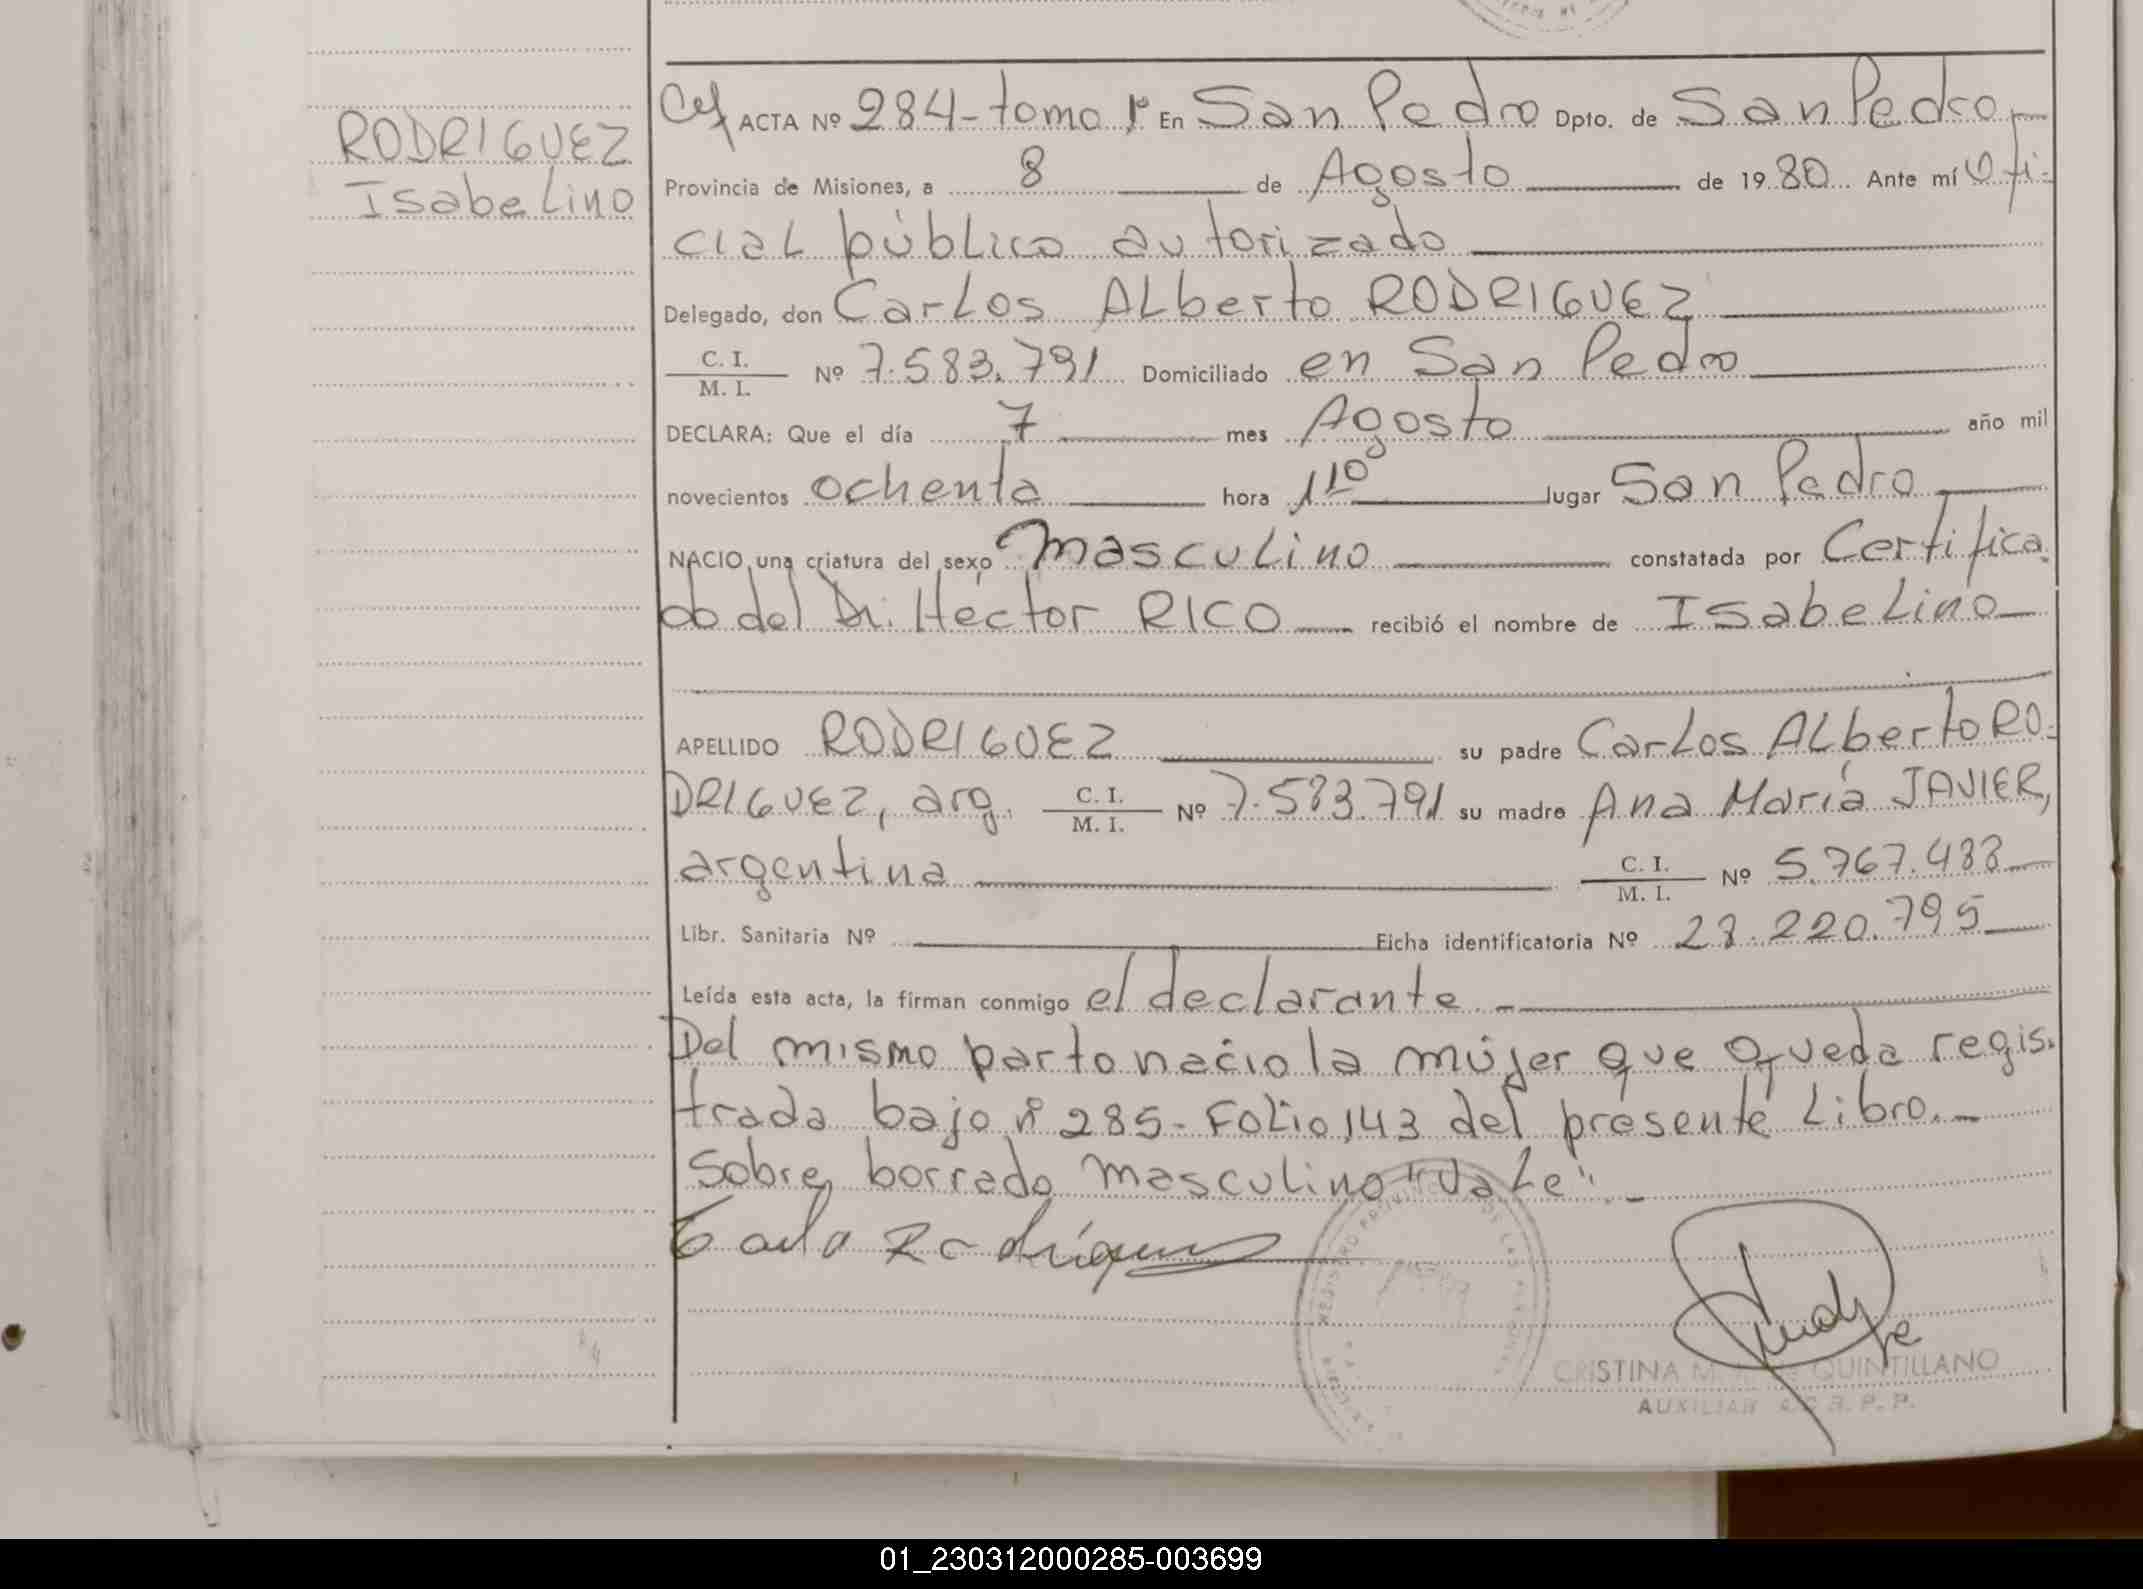 RODRIGUEZ
Isabelino
ACTA Nº 284-tomo 1º En San Pedro Dpto. de San Pedro
Provincia de Misiones, a 8 de Agosto de 1980. Ante mí Ofi-
cial público autorizado
Delegado, don Carlos Alberto RODRIGUEZ
C. I.
M. I. Nº 7.583.791 Domiciliado en San Pedro
DECLARA: Que el día 7 mes Agosto año mil
novecientos ochenta hora 1 10 lugar San Pedro
NACIO una criatura del sexo masculino constatada por Certifica
do del Dr. Héctor RICO recibió el nombre de Isabelino
APELLIDO RODRIGUEZ su padre Carlos Alberto RO-
DRIGUEZ, arg. C. I. M. I. Nº 7.583.791 su madre Ana María JAVIER,
argentina C. I. M. I. Nº 5.767.488
Libr. Sanitaria Nº Ficha identificatoria Nº 28.220.795
Leída esta acta, la firman conmigo el declarante.-
Del mismo parto nació la mujer que queda regis-
trada bajo nº 285-Folio 143 del presente Libro.-
Sobre borrado masculino "Vale".-
Carlo Rodriguez
CRISTINA QUINTILLANO
AUXILIAR
01_230312000285-003699